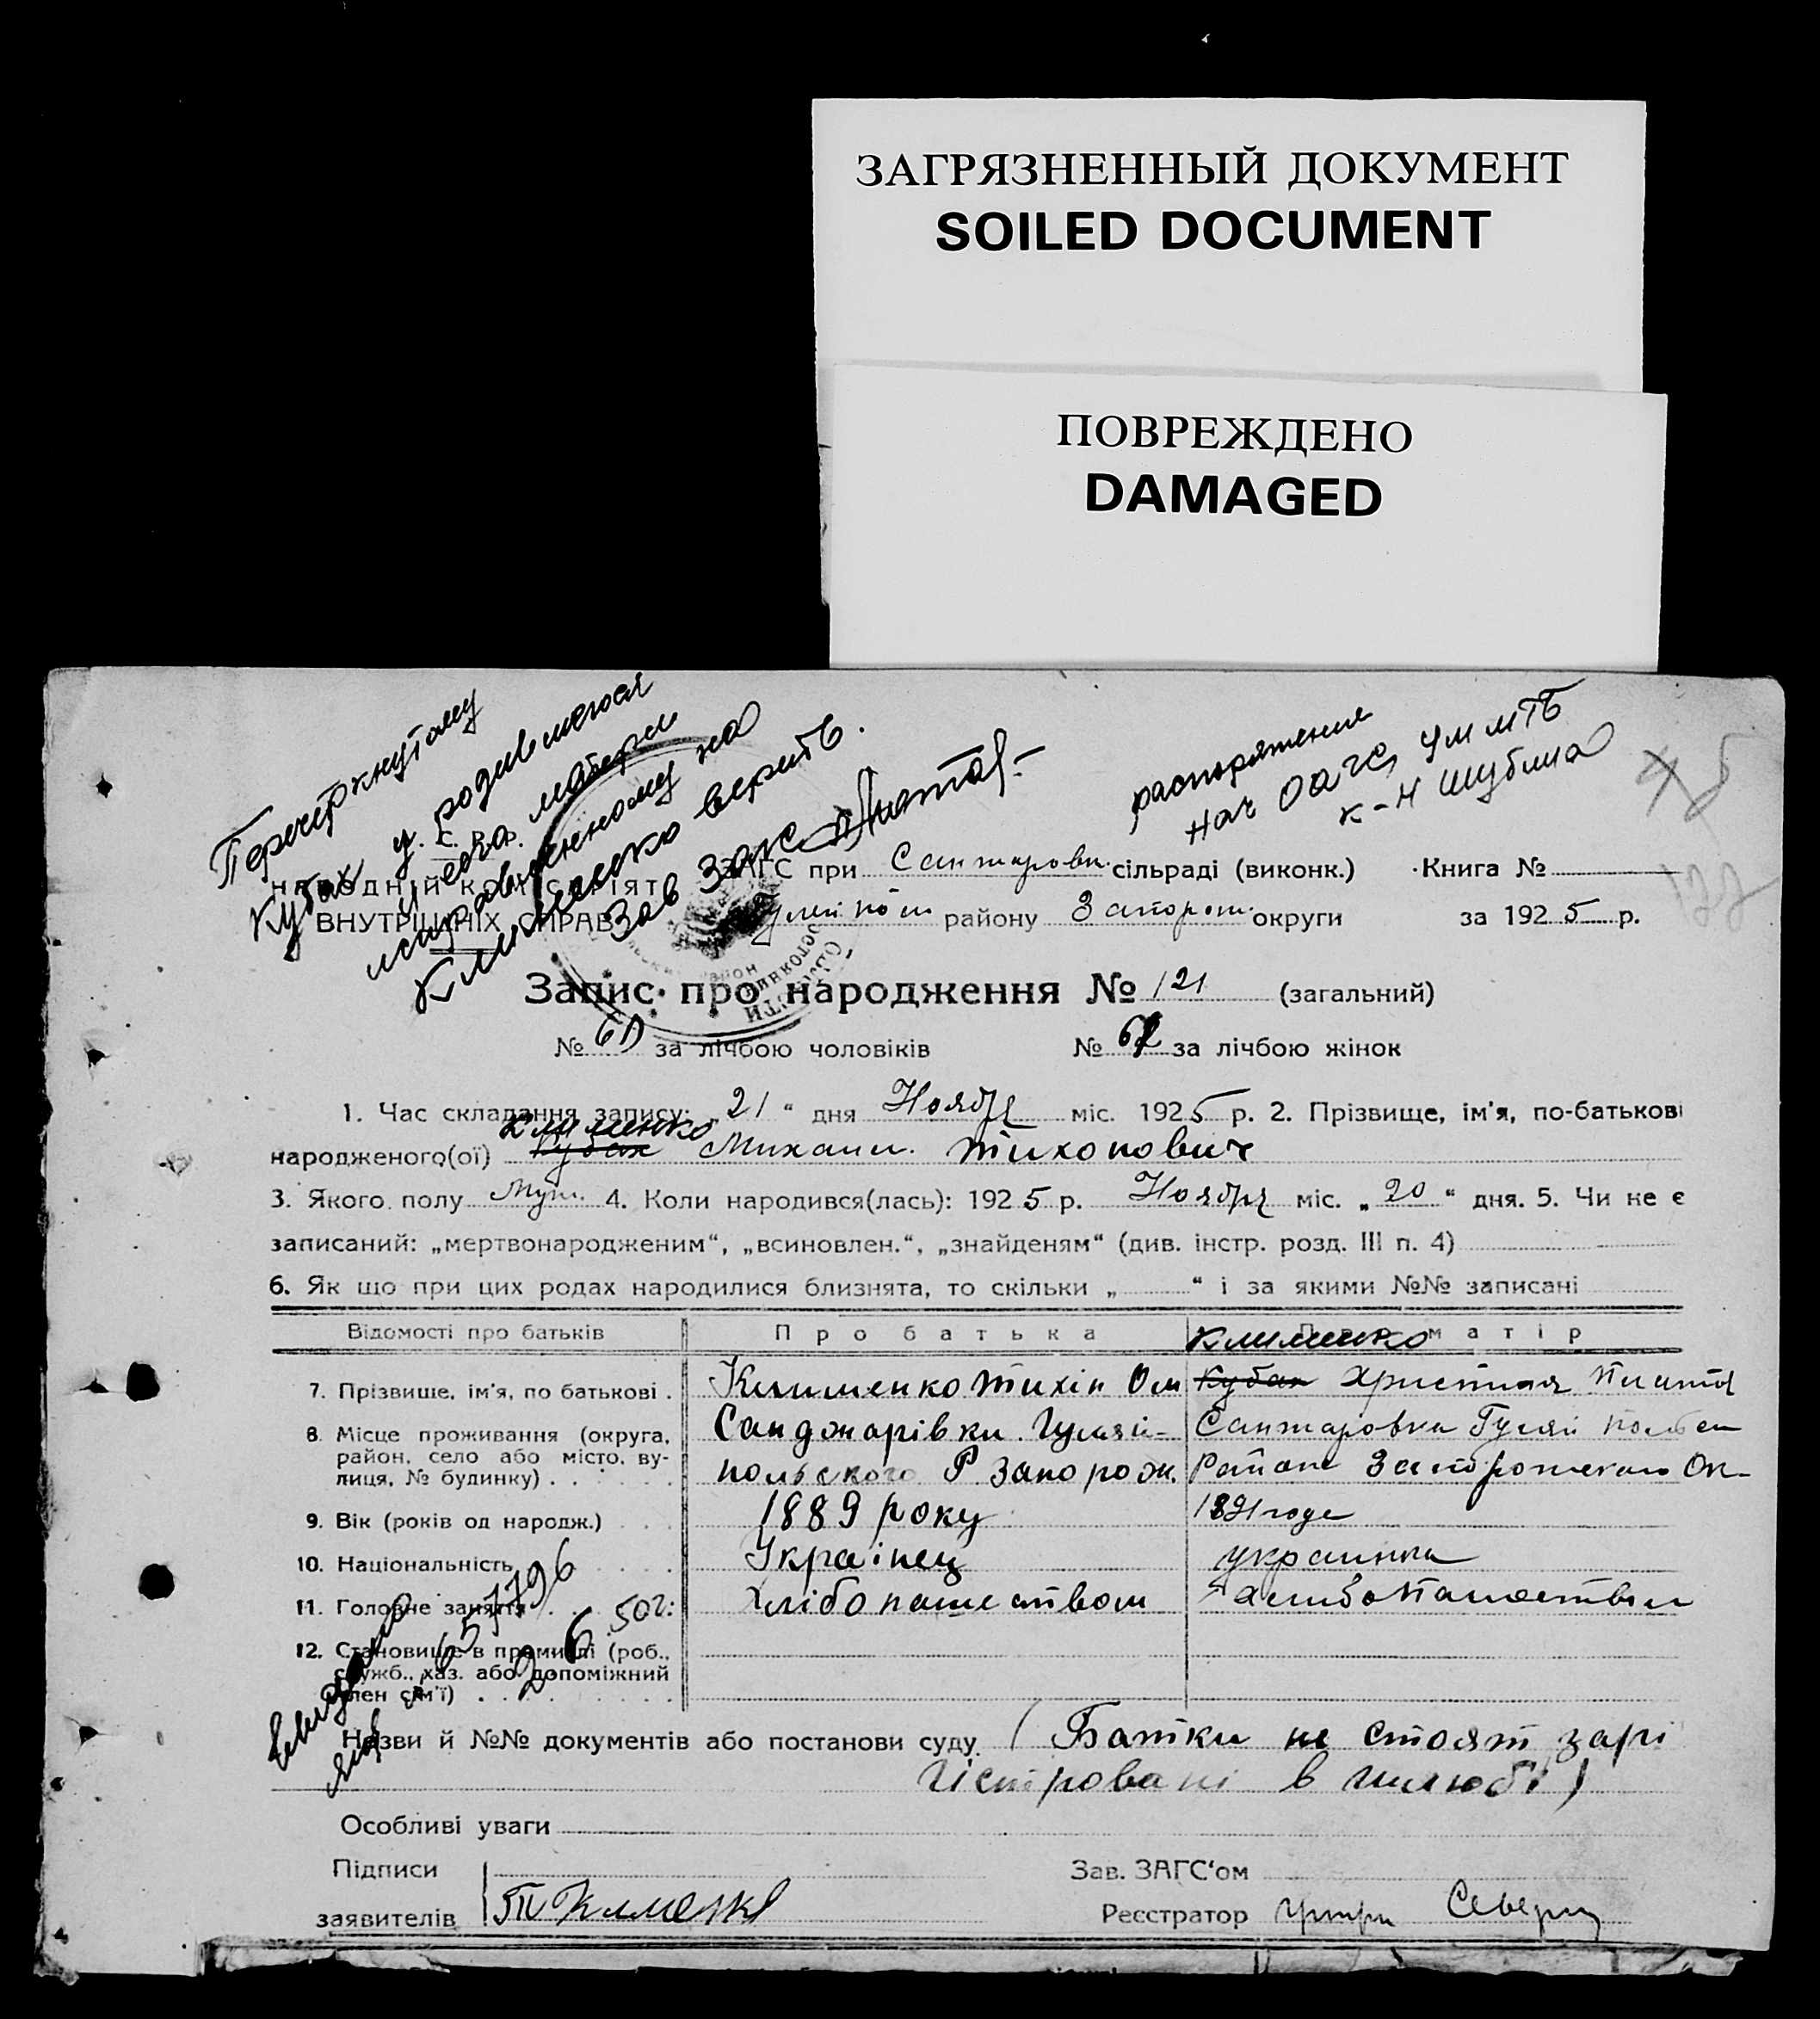 ЗАГРЯЗНЕННЫЙ ДОКУМЕНТ
SOILED DOCUMENT
ПОВРЕЖДЕНО
DAMAGED
Перечеркнутому
Кубах у родившегося
и его матери
исправленному на
Клименко верить.
Зав Загс
распоряжение
нач оагс
к-н Шубина
У. С. Р. Р.
НАРОДНІЙ КОМІСАРІЯТ
ВНУТРІШНІХ СПРАВ
ЗАГС при Санжаровк. сільраді (виконк.) Книга №
Гуляйпол району Запорож. округи за 1925 р.
122
Запис про народження № 121 (загальний)
№ 60 за лічбою чоловіків № 62 за лічбою жінок
1. Час складання запису: „21“ дня Ноября міс. 1925 р. 2. Прізвище, ім'я, по-батькові
Клименко
народженого(ої) Кубах Михаил Тихонович
3. Якого полу Муж. 4. Коли народився(лась): 1925 р. Ноября міс. „20“ дня. 5. Чи не є
записаний: „мертвонародженим“, „всиновлен.“, „знайденям“ (див. інстр. розд. III п. 4)
6. Як що при цих родах народилися близнята, то скільки „ “ і за якими №№ записані
Відомості про батьків Про батька Про матір
Клименко
7. Прізвище, ім'я, по батькові . Клименко Тихін Ом Кубах Христина
8. Місце проживання (округа, Санджарівки Гуляй- Санжаровка Гуляй польск
район, село або місто, ву-
лиця, № будинку) . . польского Р Запорож. Района Запорожскаго Ок-
9. Вік (років од народж.) . . 1889 року 1891 года
10. Національність . . Українец украинка
11. Головне заняття . . Хлібопашеством хлибопашеством
12. Становище в промислі (роб.,
служб., хаз. або допоміжний
член сім'ї) . .
657796
2 6 50г:
Назви й №№ документів або постанови суду (Батки не стоят зарі
гістровані в шлюбі)
Особливі уваги
Підписи Зав. ЗАГС'ом
заявителів Т Клименко Реєстратор